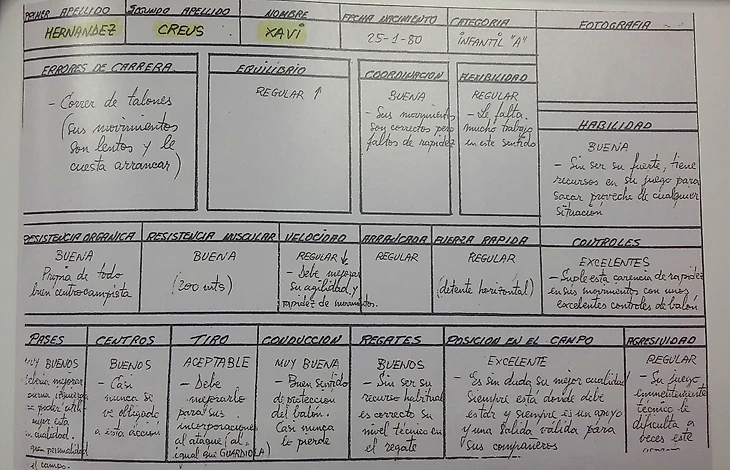 PRIMER APELLIDO
HERNANDEZ
SEGUNDO APELLIDO
CREUS
NOMBRE
XAVI
FECHA NACIMIENTO
25-1-80
CATEGORIA
INFANTIL "A"
FOTOGRAFIA
ERRORES DE CARRERA
- Correr de talones
(sus movimientos
son lentos y le
cuesta arrancar)
EQUILIBRIO
REGULAR ↑
COORDINACION
BUENA
- Sus movimientos
son correctos pero
faltos de rapidez
FLEXIBILIDAD
REGULAR
- Le falta
mucho trabajo
en este sentido
HABILIDAD
BUENA
- Sin ser su fuerte, tiene
recursos en su juego para
sacar provecho de cualquier
situacion
RESISTENCIA ORGANICA
BUENA
Propia de todo
buen centrocampista
RESISTENCIA MUSCULAR
BUENA
(200 mts)
VELOCIDAD
REGULAR ↓
- Debe mejorar
su agilidad y
rapidez de movimtos.
ARRANCADA
REGULAR
FUERZA RAPIDA
REGULAR
(detente horizontal)
CONTROLES
EXCELENTES
- Suple esta carencia de rapidez
en sus movimientos con unos
excelentes controles de balón
PASES
MUY BUENOS
mejorar
poder
mejor esta
cualidad.
gran personalidad
el campo.
CENTROS
BUENOS
- Casi
nunca se
ve obligado
a esta acción
TIRO
ACEPTABLE
- Debe
mejorarlo
para sus
incorporaciones
al ataque (al
igual que GUARDIOLA)
CONDUCCION
MUY BUENA
- Buen sentido
de protección
del balón.
Casi nunca
lo pierde
REGATES
BUENOS
- Sin ser su
recurso habitual
es correcto su
nivel técnico en
el regate
POSICION EN EL CAMPO
EXCELENTE
- Es sin duda su mejor cualidad
Siempre está donde debe
estar y siempre es un apoyo
y una salida válida para
sus compañeros
AGRESIVIDAD
REGULAR
- Su juego
eminentemente
técnico le
dificulta a
veces este